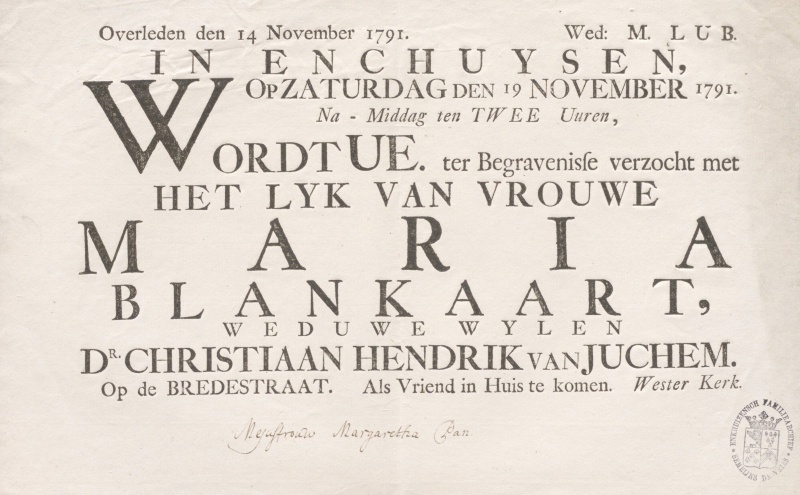 Overleden den 14 November 1791. Wed: M. LUB.
IN ENCHUYSEN,
Op ZATURDAG DEN 19 NOVEMBER 1791.
Na - Middag ten TWEE Uuren,
WORDT UE. ter Begravenisſe verzocht met
HET LYK VAN VROUWE
MARIA
BLANKAART,
WEDUWE WYLEN
DR. CHRISTIAAN HENDRIK VAN JUCHEM.
Op de BREDESTRAAT. Als Vriend in Huis te komen. Wester Kerk.
Mejuffrouw Margaretha Pan.
ENKHUIZENSCH FAMILIEARCHIEF